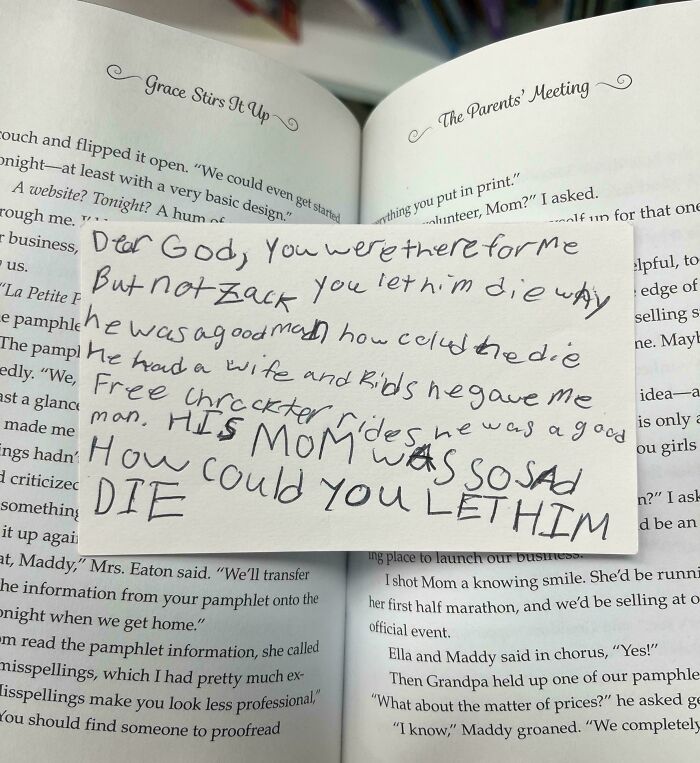 Grace Stirs It Up
couch and flipped it open. "We could even get started
onight—at least with a very basic design."
A website? Tonight? A hum of
rough me.
r business,
us.
"La Petite P
e pamphle
The pampl
edly. "We,
ast a glance
made me
ings hadn'
d criticized
something
it up agai
at, Maddy," Mrs. Eaton said. "We'll transfer
he information from your pamphlet onto the
onight when we get home."
om read the pamphlet information, she called
misspellings, which I had pretty much ex-
Misspellings make you look less professional,"
You should find someone to proofread
Dear God, you were there for me
But not Zack you let him die why
he was a good man how colud he die
He had a wife and kids he gave me
Free chrackter rides he was a good
man. HIS MOM WAS SO SAD
How could you LET HIM
DIE
The Parents' Meeting
rything you put in print."
olunteer, Mom?" I asked.
self up for that one
elpful, to
edge of
selling s
ne. Mayb
idea—a
is only a
ou girls
n?" I ask
d be an
ing place to launch our business.
I shot Mom a knowing smile. She'd be runni
her first half marathon, and we'd be selling at o
official event.
Ella and Maddy said in chorus, "Yes!"
Then Grandpa held up one of our pamphle
"What about the matter of prices?" he asked ge
"I know," Maddy groaned. "We completely